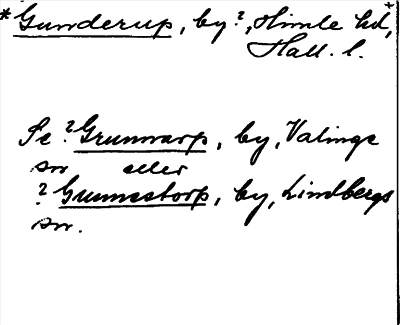 *Gunderup, by?, Himle hd,
Hall. l.
Se ?Grunnarp, by, Valinge
sn eller
?Gunnestorp, by, Lindbergs
sn.